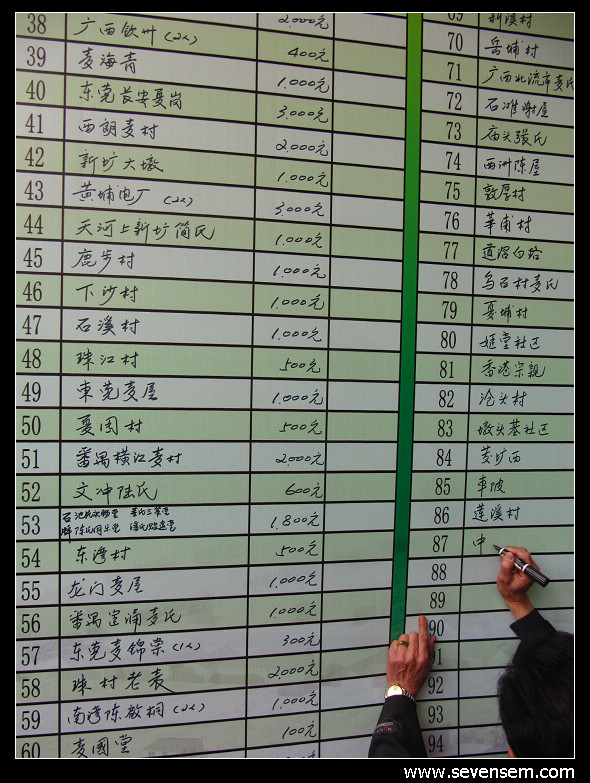 38 广西钦州 (2人) 2,000元
39 麦海青 400元
40 东莞长安夏岗 1,000元
41 西朗麦村 3,000元
42 新圹大墩 2,000元
43 黄埔电厂 (2人) 1,000元
44 天河上新圹简氏 3,000元
45 鹿步村 1,000元
46 下沙村 1,000元
47 石溪村 1,000元
48 珠江村 500元
49 東莞麦屋 1,000元
50 夏园村 500元
51 番禺横江麦村 2,000元
52 文冲陆氏 600元
53 1,800元
54 东湾村 500元
55 龙门麦屋 1,000元
56 番禺 涌麦氏 1,000元
57 东莞麦锦棠 (1人) 300元
58 珠村老表 2,000元
59 南湾陈敬桐 (2人) 1,000元
60 麦國堂 100元
69 新溪村
70 岳埔村
71 广西北流市麦氏
72 石滩谢屋
73 庙头張氏
74 西洲陈屋
75 敦厚村
76 華甫村
77 道滘白
78 乌石村麦氏
79 夏埔村
80 姬堂社区
81 香港宗親
82 沧头村
83 墩头基社区
84 圹西
85 車陂
86 莲溪村
87 中
88
89
90
91
92
93
94
www.sevensem.com